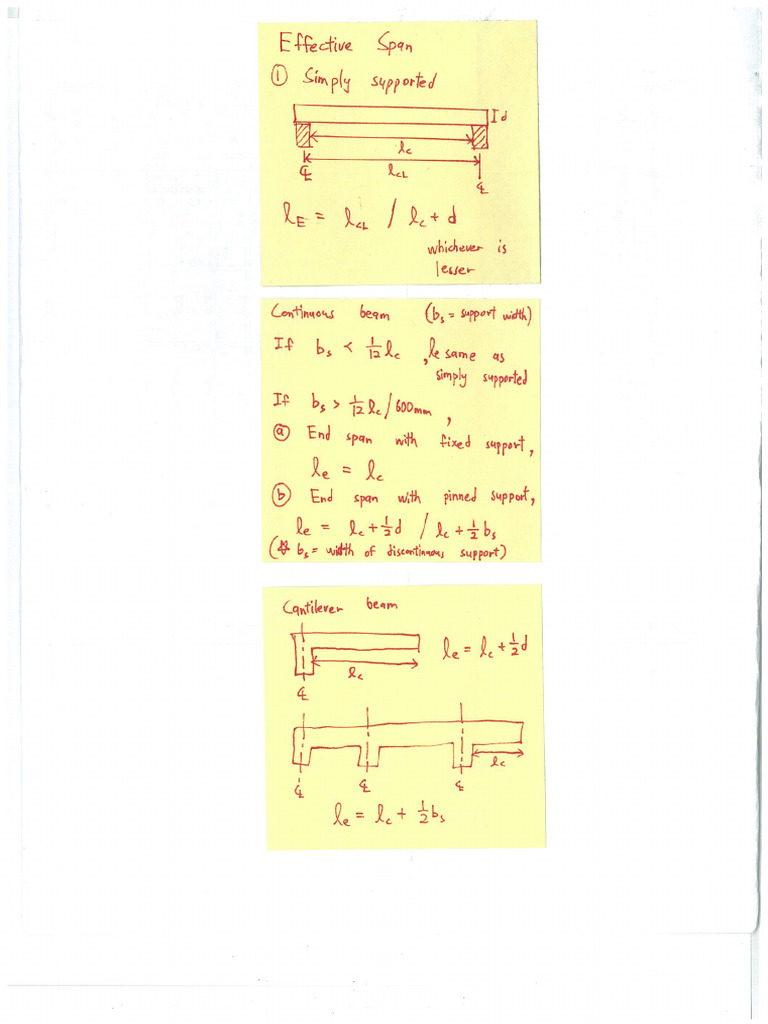 Effective Span
① Simply supported
I d
lc
lcL
℄
℄
lE = lcL / lc + d
whichever is
lesser
Continuous beam (bs = support width)
If bs < 1/12 lc , le same as
simply supported
If bs > 1/12 lc / 600mm ,
ⓐ End span with fixed support,
le = lc
ⓑ End span with pinned support,
le = lc + 1/2 d / lc + 1/2 bs
(* bs = width of discontinuous support)
Cantilever beam
le = lc + 1/2 d
lc
℄
lc
℄ ℄ ℄
le = lc + 1/2 bs